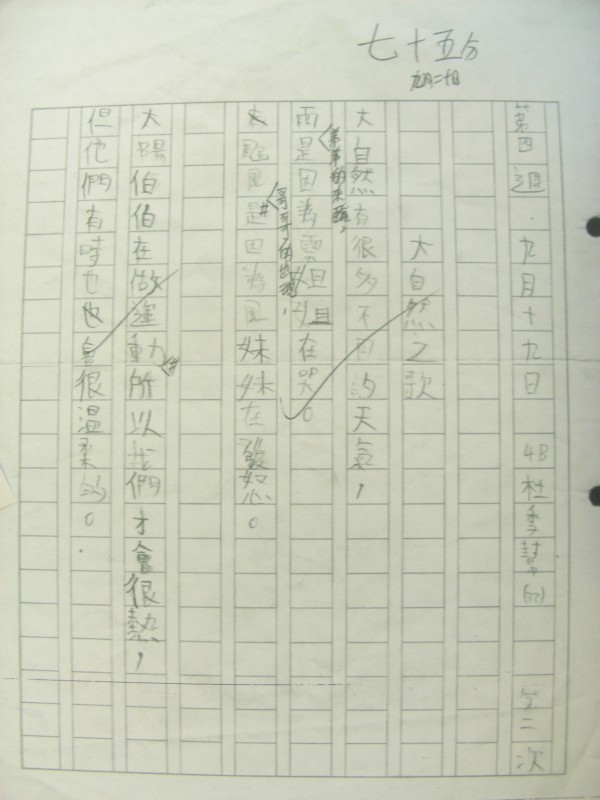 七十五分
九月二十日
第四週．九月十九日 4B 杜季 (22) 第二次
大自然之歌
大自然有很多不同的天氣，
雨是弟弟的來臨，因為雲姐姐在哭。
太颱風是哥哥的出現，因為風妹妹在發怒。
太陽伯伯在做運動，所以我們才會很熱，
但他們有時也也會很溫柔的。